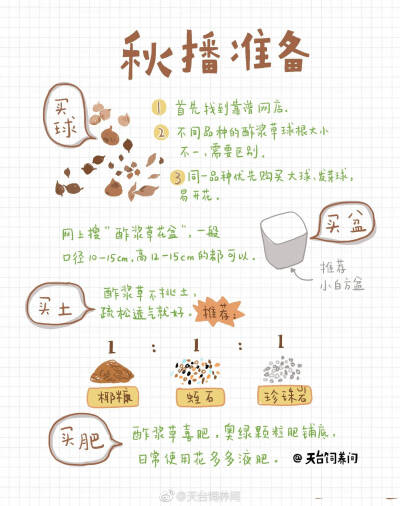 秋播准备
买球
1 首先找到靠谱网店.
2 不同品种的酢浆草球根大小
不一,需要区别.
3 同一品种优先购买大球,发芽球,
易开花.
买盆
网上搜“酢浆草花盆”,一般
口径10-15cm,高12-15cm的都可以.
推荐
小白方盆
买土
酢浆草不挑土,
疏松透气就好.
推荐:
1 : 1 : 1
椰糠 蛭石 珍珠岩
买肥
酢浆草喜肥,奥绿颗粒肥铺底,
日常使用花多多液肥.
@天台饲养间
@天台饲养间